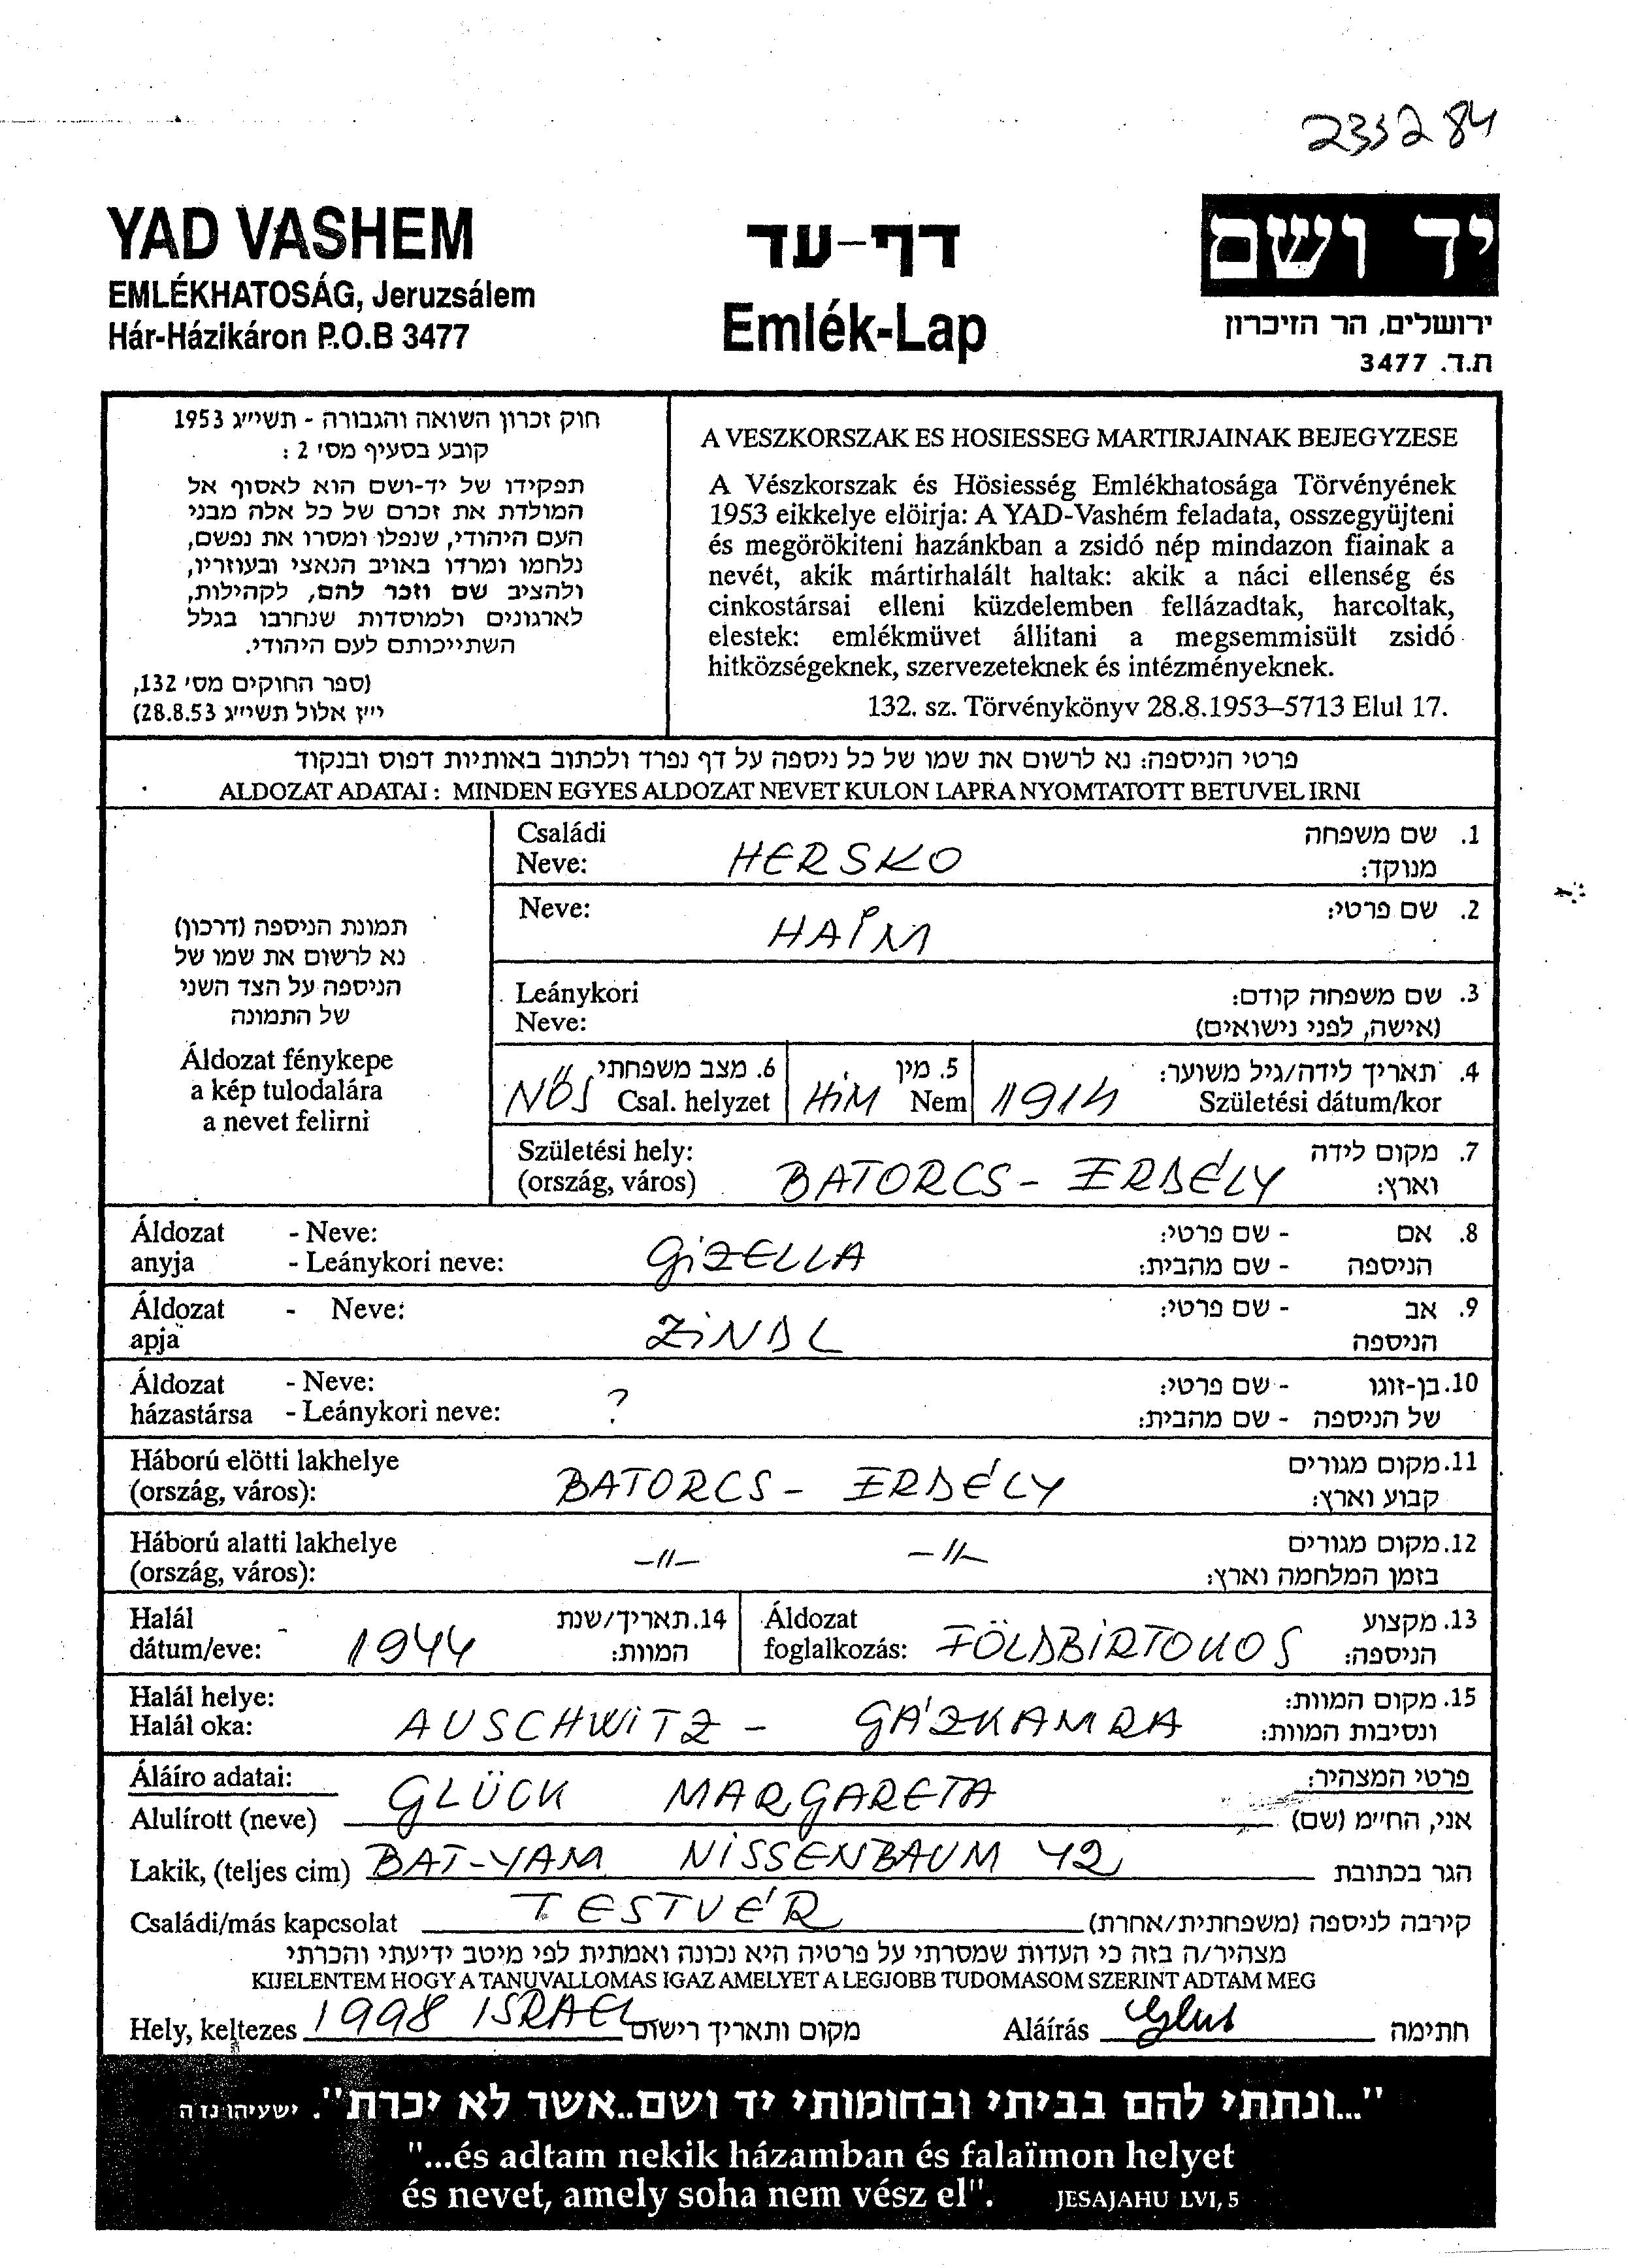 233284
YAD VASHEM
EMLÉKHATOSÁG, Jeruzsálem
Hár-Házikáron P.O.B 3477
דף-עד
Emlék-Lap
יד ושם
ירושלים, הר הזיכרון
ת.ד. 3477
חוק זכרון השואה והגבורה - תשי״ג 1953
קובע בסעיף מס׳ 2 :
תפקידו של יד-ושם הוא לאסוף אל
המולדת את זכרם של כל אלה מבני
העם היהודי, שנפלו ומסרו את נפשם,
נלחמו ומרדו באויב הנאצי ובעוזריו,
ולהציב שם וזכר להם, לקהילות,
לארגונים ולמוסדות שנחרבו בגלל
השתייכותם לעם היהודי.
(ספר החוקים מס׳ 132,
י״ז אלול תשי״ג 28.8.53)
A VESZKORSZAK ES HOSIESSEG MARTIRJAINAK BEJEGYZESE
A Vészkorszak és Hösiesség Emlékhatosága Törvényének
1953 eikkelye elöirja: A YAD-Vashém feladata, osszegyüjteni
és megörökiteni hazánkban a zsidó nép mindazon fiainak a
nevét, akik mártirhalált haltak: akik a náci ellenség és
cinkostársai elleni küzdelemben fellázadtak, harcoltak,
elestek: emlékmüvet állitani a megsemmisült zsidó
hitközségeknek, szervezeteknek és intézményeknek.
132. sz. Törvénykönyv 28.8.1953–5713 Elul 17.
פרטי הניספה: נא לרשום את שמו של כל ניספה על דף נפרד ולכתוב באותיות דפוס ובנקוד
ALDOZAT ADATAI : MINDEN EGYES ALDOZAT NEVET KULON LAPRA NYOMTATOTT BETUVEL IRNI
תמונת הניספה (דרכון)
נא לרשום את שמו של
הניספה על הצד השני
של התמונה
Áldozat fénykepe
a kép tulodalára
a nevet felirni
Családi
Neve: HERSKO
1. שם משפחה
מנוקד:
Neve: HAIM 2. שם פרטי:
Leánykori
Neve:
3. שם משפחה קודם:
(אישה, לפני נישואים)
NŐS 6. מצב משפחתי
Csal. helyzet
HIM 5. מין
Nem
1914 4. תאריך לידה/גיל משוער:
Születési dátum/kor
Születési hely:
(ország, város) BATORCS - ERDÉLY
7. מקום לידה
וארץ:
Áldozat - Neve: 8. אם - שם פרטי:
anyja - Leánykori neve: GIZELLA הניספה - שם מהבית:
Áldozat - Neve: 9. אב - שם פרטי:
apja ZINDL הניספה
Áldozat - Neve: 10. בן-זוגו - שם פרטי:
házastársa - Leánykori neve: ? של הניספה - שם מהבית:
Háború elötti lakhelye 11. מקום מגורים
(ország, város): BATORCS - ERDÉLY קבוע וארץ:
Háború alatti lakhelye 12. מקום מגורים
(ország, város): –//– –//– בזמן המלחמה וארץ:
Halál 14. תאריך/שנת
dátum/eve: 1944 המוות:
Áldozat 13. מקצוע
foglalkozás: FÖLDBIRTOKOS הניספה:
Halál helye: 15. מקום המוות:
Halál oka: AUSCHWITZ - GÁZKAMRA ונסיבות המוות:
Áláíro adatai: פרטי המצהיר:
Alulírott (neve) GLÜCK MARGARETA אני, החי״מ (שם)
Lakik, (teljes cim) BAT-YAM NISSENBAUM 42 הגר בכתובת
Családi/más kapcsolat TESTVÉR קירבה לניספה (משפחתית/אחרת)
מצהיר/ה בזה כי העדות שמסרתי על פרטיה היא נכונה ואמתית לפי מיטב ידיעתי והכרתי
KIJELENTEM HOGY A TANUVALLOMAS IGAZ AMELYET A LEGJOBB TUDOMASOM SZERINT ADTAM MEG
Hely, keltezes 1998 ISRAEL מקום ותאריך רישום Aláírás חתימה
"...ונתתי להם בביתי ובחומותי יד ושם..אשר לא יכרת". ישעיהו נו ה
"...és adtam nekik házamban és falaïmon helyet
és nevet, amely soha nem vész el". JESAJAHU LVI, 5